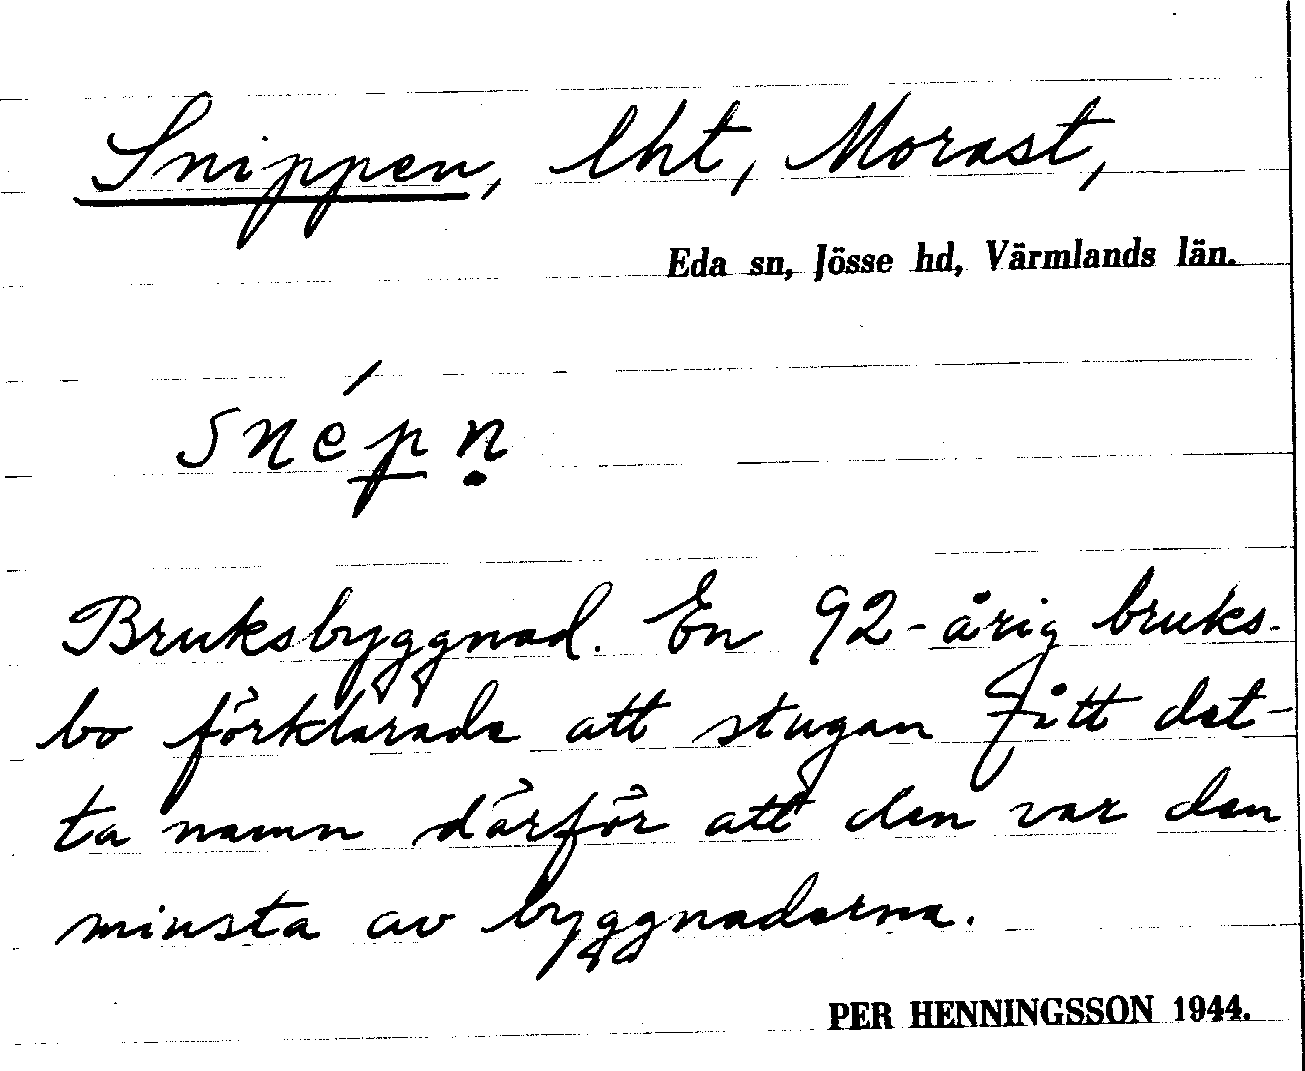 Snippen, lht, Morast,
Eda sn, Jösse hd, Värmlands län.
snépṇ
Bruksbyggnad. En 92-årig bruks-
bo förklarade att stugan fått det-
ta namn därför att den var den
minsta av byggnaderna.
PER HENNINGSSON 1944.